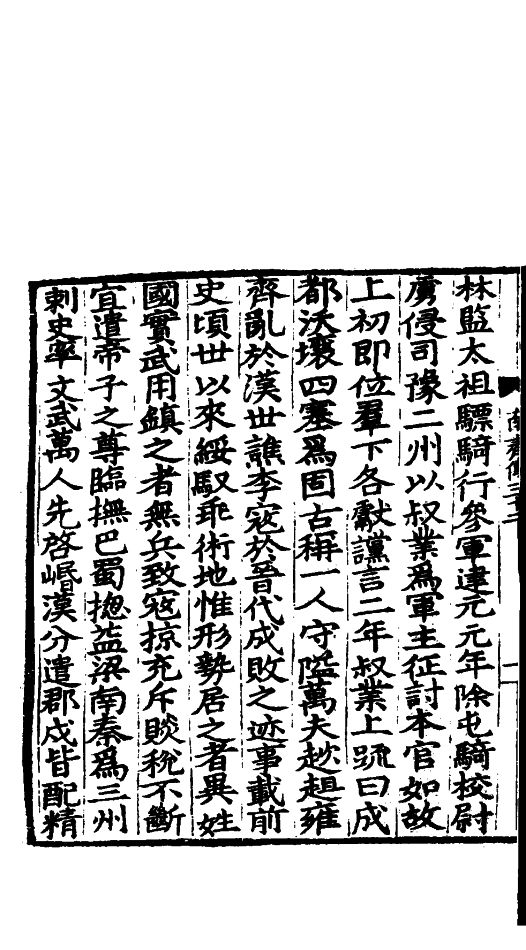 林監太祖驃騎行參軍建元元年除屯騎校尉
虜侵司豫二州以叔業爲軍主征討本官如故
上初即位羣下各獻讜言二年叔業上疏曰成
都沃壤四塞爲固古稱一人守隘萬夫趑趄雍
齊亂於漢世譙李寇於晉代成敗之迹事載前
史頃世以來綏馭乖術地惟形勢居之者異姓
國實武用鎮之者無兵致寇掠充斥賧稅不斷
宜遣帝子之尊臨撫巴蜀揔益梁南秦爲三州
刺史率文武萬人先啓岷漢分遣郡戍皆配精